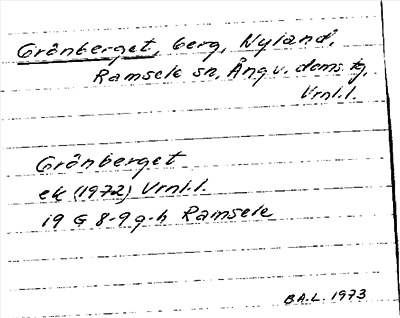 Grönberget, berg, Nyland,
Ramsele sn, Ång v. doms. tg,
Vrnl.l.
Grönberget
ek (1972) Vrnl.l.
19 G 8-9 g-h Ramsele
B.A.L. 1973